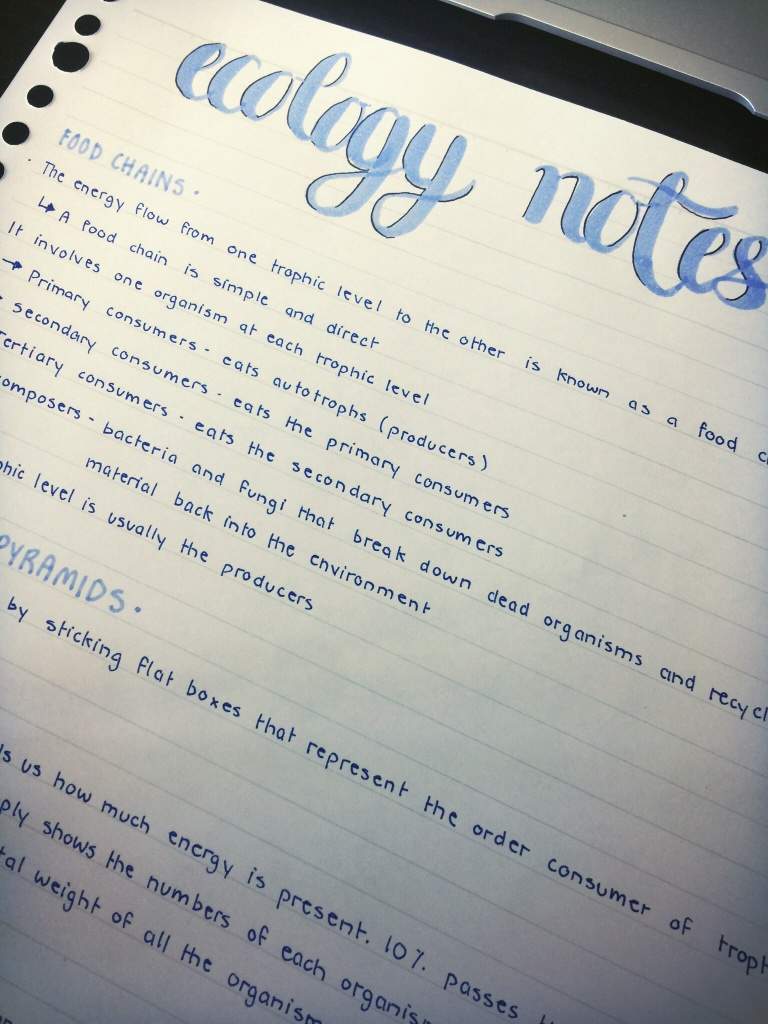 ecology notes
FOOD CHAINS.
· The energy flow from one trophic level to the other is known as a food
↳ A food chain is simple and direct
It involves one organism at each trophic level
→ Primary consumers - eats autotrophs (producers)
secondary consumers - eats the primary consumers
Tertiary consumers - eats the secondary consumers
composers - bacteria and fungi that break down dead organisms and recycl
material back into the environment
phic level is usually the producers
PYRAMIDS.
by sticking flat boxes that represent the order consumer of troph
ls us how much energy is present. 10% passes
ply shows the numbers of each organis
tal weight of all the organism